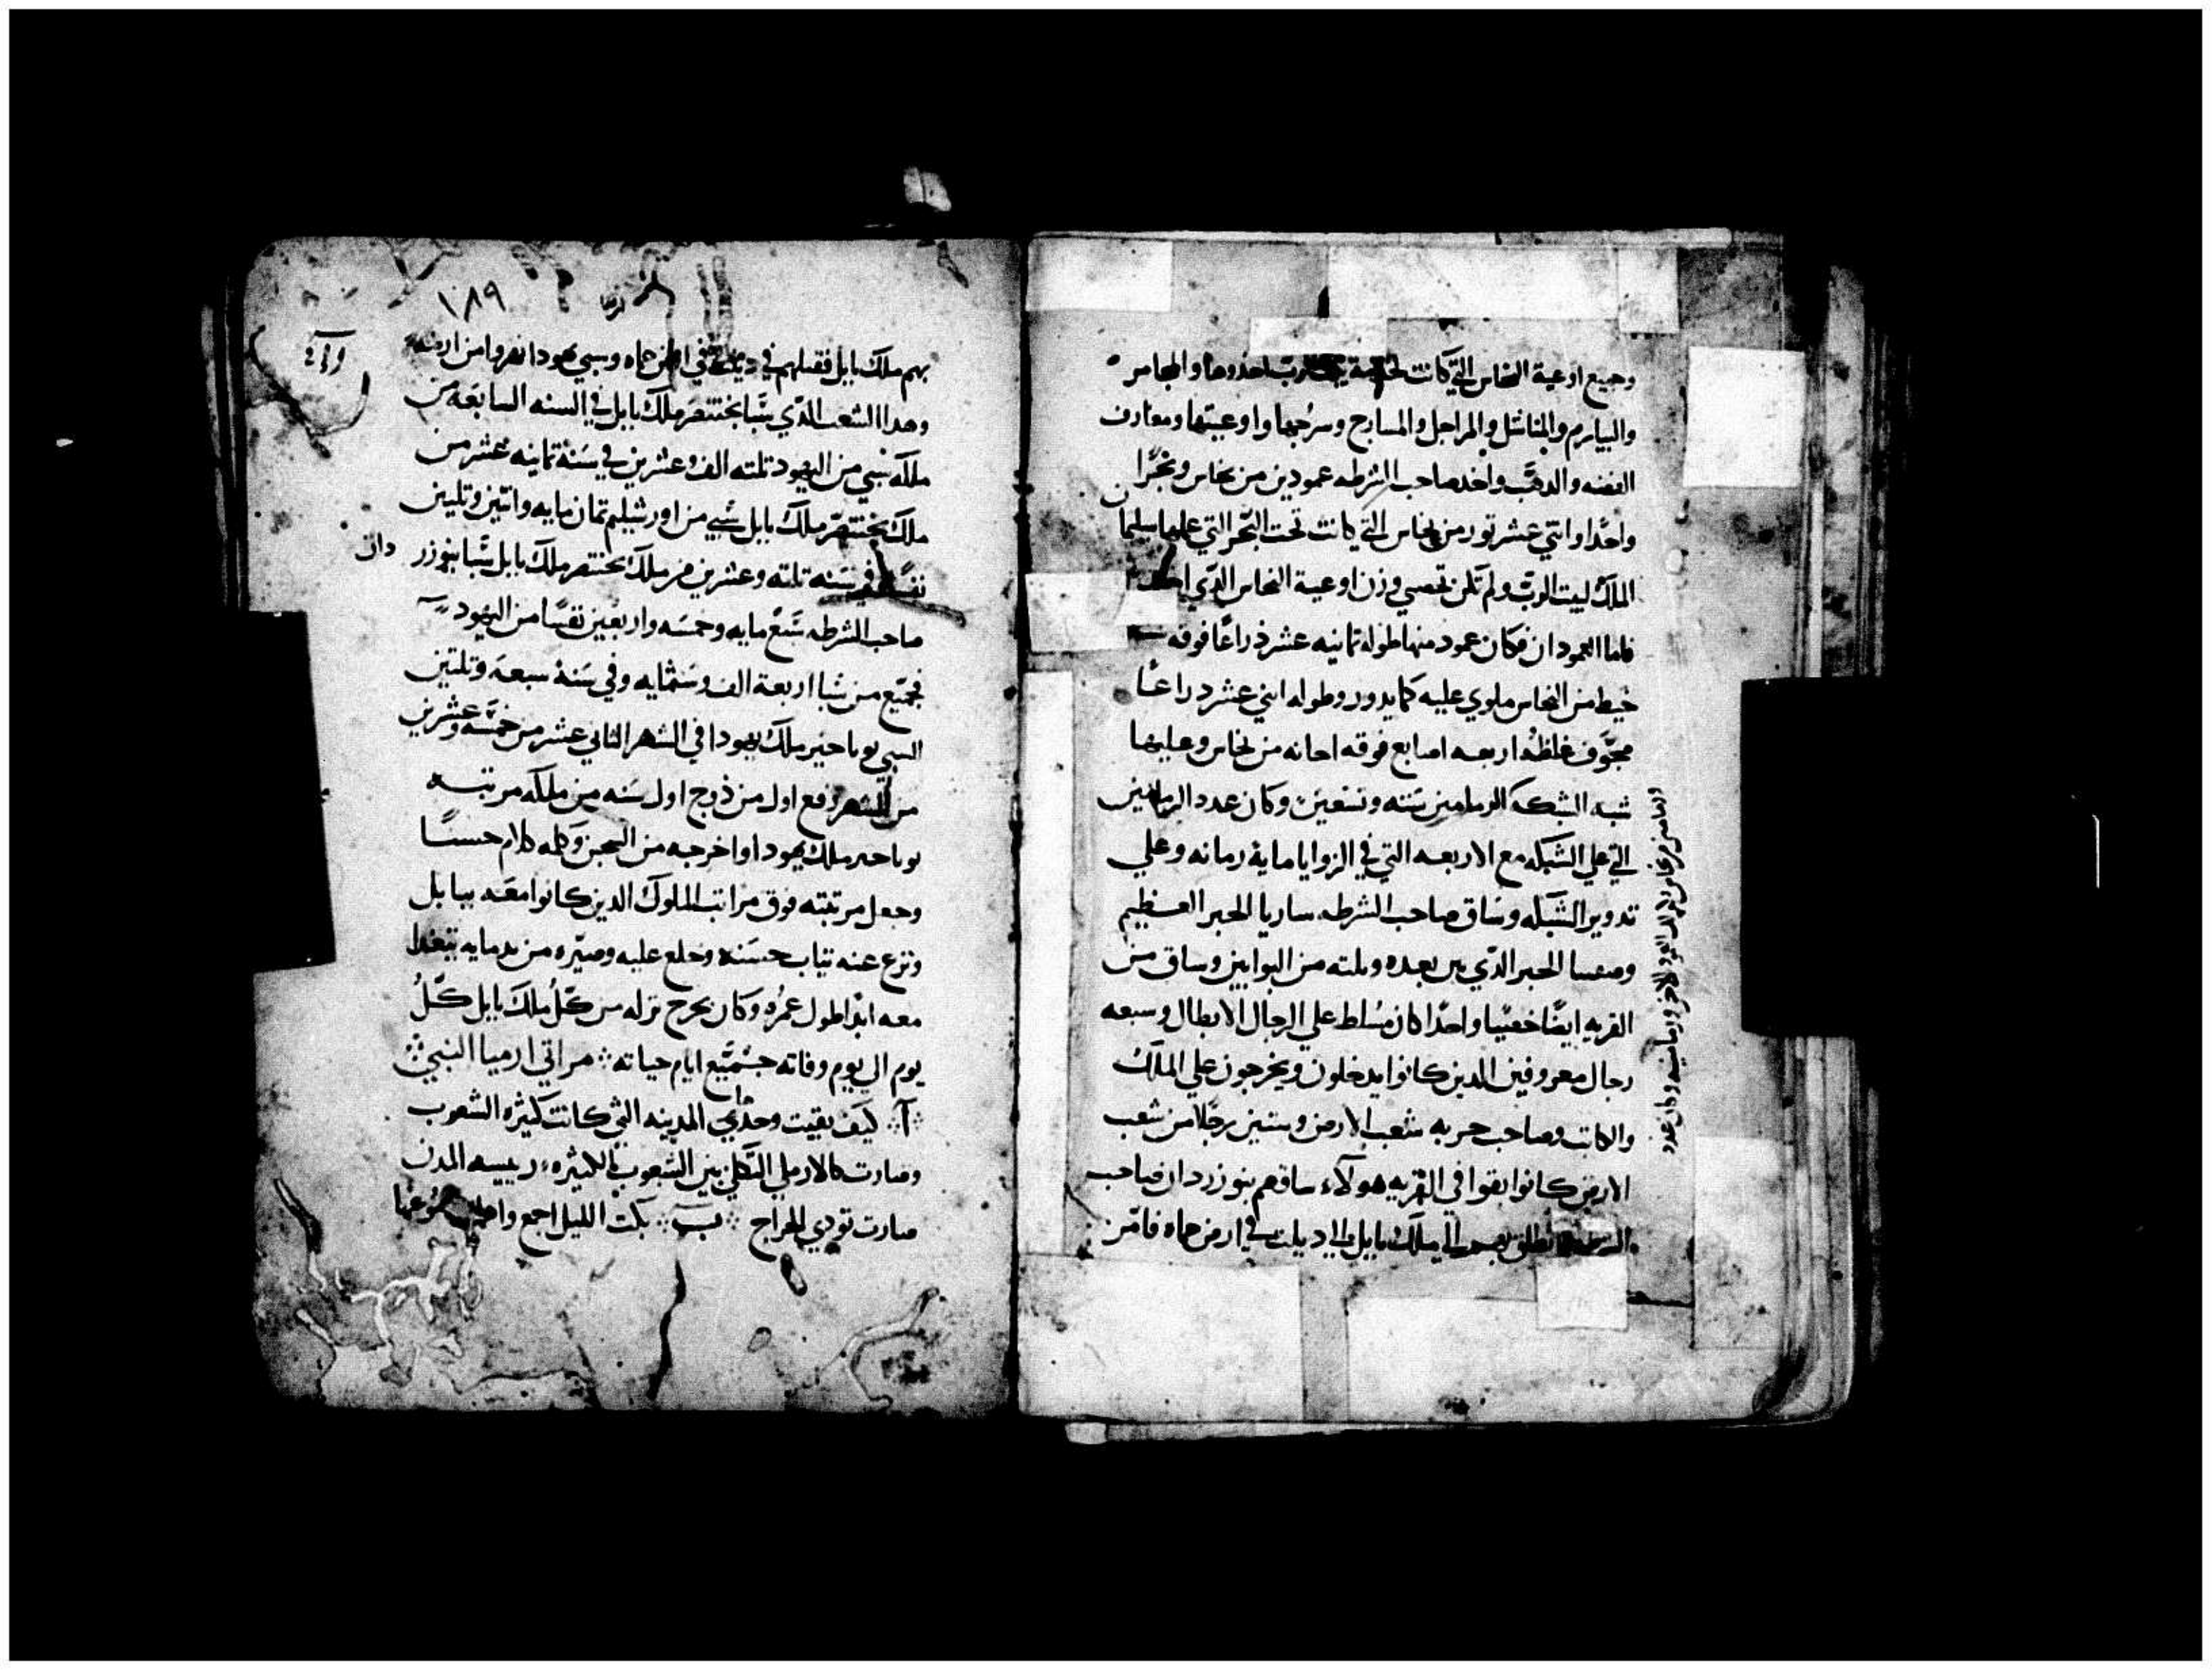 وجميع اوعية النحاس التي كانت لخدمة بيت الرب اخدوها والمجامر
والبيارم والمناشل والمراجل والمسارج وسرجها واوعيتها ومعارف
الفضه والدهب واخد صاحب الشرطه عمودين من نحاس وبحرًا
واحدًا واتني عشر تور من نحاس التي كانت تحت البحر التي عملها سليمان
الملك لبيت الرب ولم تكن تحصي وزن اوعية النحاس الدي
فاما العمودان فكان عمود منها طوله تمانيه عشر ذراعًا فوقه
خيط من النحاس ملوي عليه كما يدور وطوله اتني عشر دراعًا
مجوّف غلظه اربعه اصابع فوقه اجانه من نحاس وعليها
شبه الشبكه الرمامين سته وتسعين وكان عدد الرمامين
التي علي الشبكه مع الاربعه التي في الزوايا ماية رمانه وعلي
تدوير الشبكه وساق صاحب الشرطه ساريا الحبر العظيم
وصفنيا الحبر الدي من بعده وتلته من البوابين وساق من
القريه ايضًا خصيًا واحدًا كان مسلط علي الرجال الابطال وسبعه
رجال معروفين الدين كانوا يدخلون ويخرجون علي الملك
والكاتب وصاحب حربه شعب الارض وستين رجلًا من شعب
الارض كانوا بقوا في القريه هولاء ساقهم بنوزردان صاحب
الشرطه وانطلق بهم الي ملك بابل الي ديلت في ارض حماه فامر
وكان عدد
١٨٩
ارميا
بهم ملك بابل فقتلهم في ديلت في ارض حماه وسبي يهودا نفروا من ارضه
وهدا الشعب الدي سبا بختنصر ملك بابل في السنه السابعه من
ملكه سبي من اليهود تلته الف وعشرين في سنة تمانيه عشر من
ملك بختنصر ملك بابل سبي من اورشليم تمان مايه واتنين وتلتين
نفسًا في سنه تلته وعشرين من ملك بختنصر ملك بابل سبا بنوزر دان
صاحب الشرطه سبع مايه وخمسه واربعين نفسًا من اليهود
فجميع من سبا اربعة الف وستمايه وفي سنة سبعه وتلتين
السبي يوياحين ملك يهودا في الشهر الثاني عشر من خمسه وعشرين
من الشهر رفع اول مرذوج اول سنه من ملكه مرتبه
يوياحين ملك يهودا واخرجه من السجن وكلمه كلام حسنًا
وجعل مرتبته فوق مراتب الملوك الدين كانوا معه ببابل
ونزع عنه تياب حبسه وخلع عليه وصيره من ندمايه يتغدا
معه ابدًا طول عمره وكان يخرج نزله من كل ملك بابل كل
يوم الي يوم وفاته جميع ايام حياته ※ مراتي ارميا النبي ※
※ آ ※ كيف بقيت وحدي المدينه التي كانت كثيرة الشعوب
وصارت كالارمله التكلي بين الشعوب الكثيره رييسه المدن
صارت تودي الخراج ※ ب ※ بكت الليل اجمع